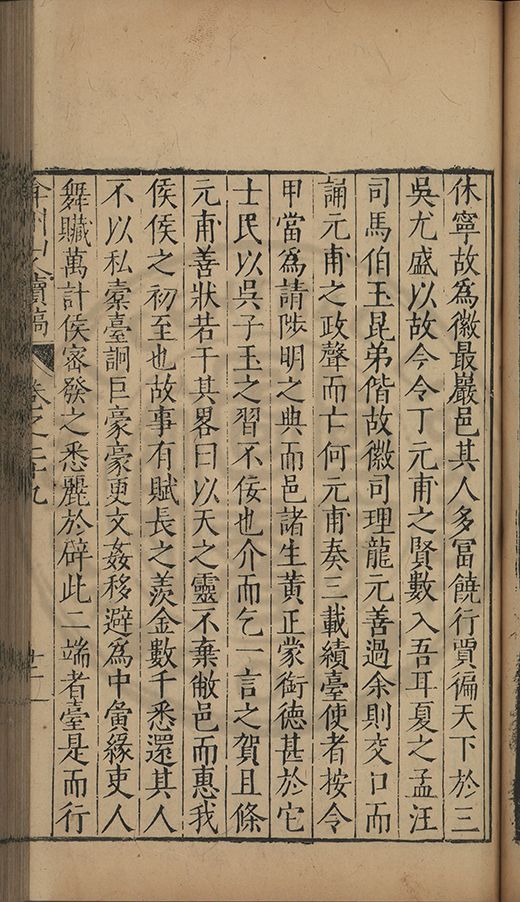 休寧故為徽最巖邑其人多富饒行賈徧天下於三
吳尤盛以故今令丁元甫之賢數入吾耳夏之孟汪
司馬伯玉昆弟偕故徽司理龍元善過余則交口而
誦元甫之政聲而亡何元甫奏三載績臺使者按令
甲當為請陟明之典而邑諸生黃正蒙銜德甚於它
士民以吳子玉之習不佞也介而乞一言之賀且條
元甫善狀若干其畧曰以天之靈不棄敝邑而惠我
侯侯之初至也故事有賦長之羨金數千悉還其人
不以私槖臺詗巨豪豪更文姦移避為中奧緣吏人
舞贓萬計侯密發之悉麗於辟此二端者臺是而行
續稿 卷之二十九